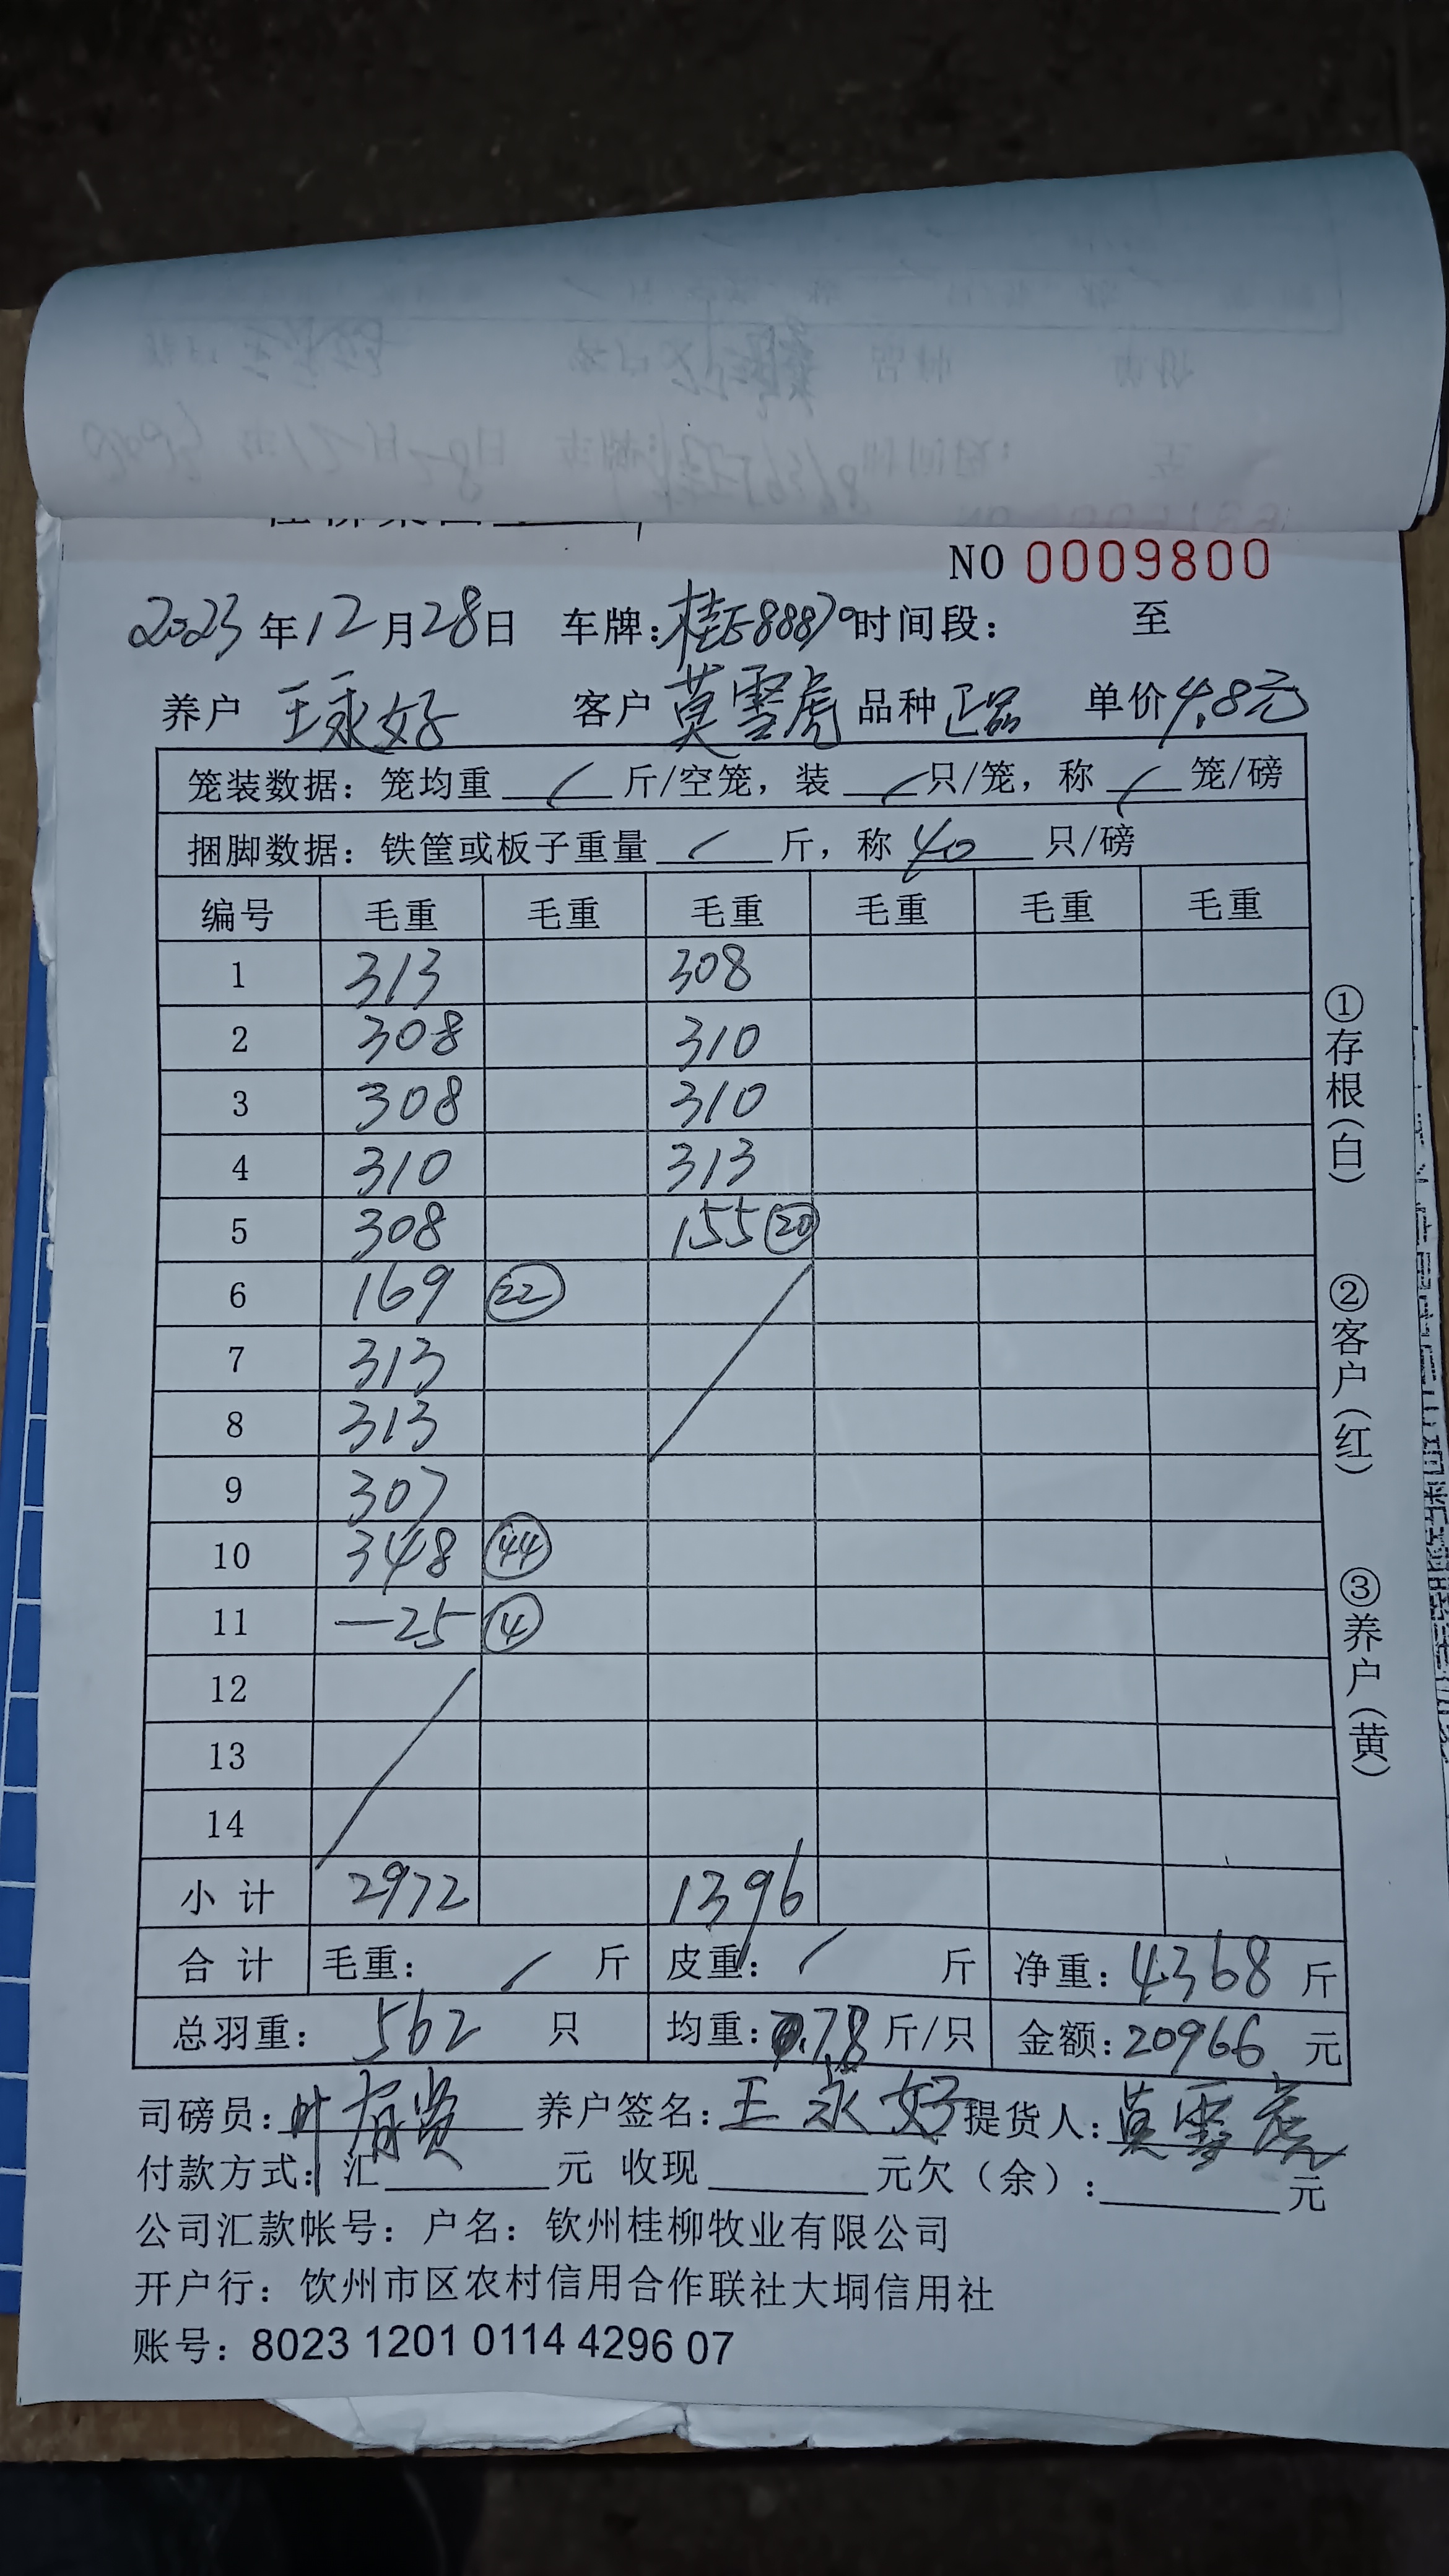 NO 0009800
2023年12月28日 车牌:桂E88870时间段: 至
养户 王永好 客户 莫雪虎 品种 正品 单价4.8元
笼装数据: 笼均重 / 斤/空笼, 装 / 只/笼, 称 / 笼/磅
捆脚数据: 铁筐或板子重量 / 斤, 称 40 只/磅
编号 毛重 毛重 毛重 毛重 毛重 毛重
1 313 308
2 308 310
3 308 310
4 310 313
5 308 155 ⑳
6 169 ㉒
7 313
8 313
9 307
10 348 ㊹
11 —25 ④
12
13
14
小计 2972 1396
合计 毛重: / 斤 皮重: / 斤 净重: 4368 斤
总羽重: 562 只 均重: 7.78 斤/只 金额: 20966 元
司磅员: 叶 养户签名: 王永好 提货人: 莫雪虎
付款方式: 汇 元 收现 元欠(余): 元
公司汇款帐号: 户名: 钦州桂柳牧业有限公司
开户行: 饮州市区农村信用合作联社大垌信用社
账号: 8023 1201 0114 4296 07
①存根(白)
②客户(红)
③养户(黄)